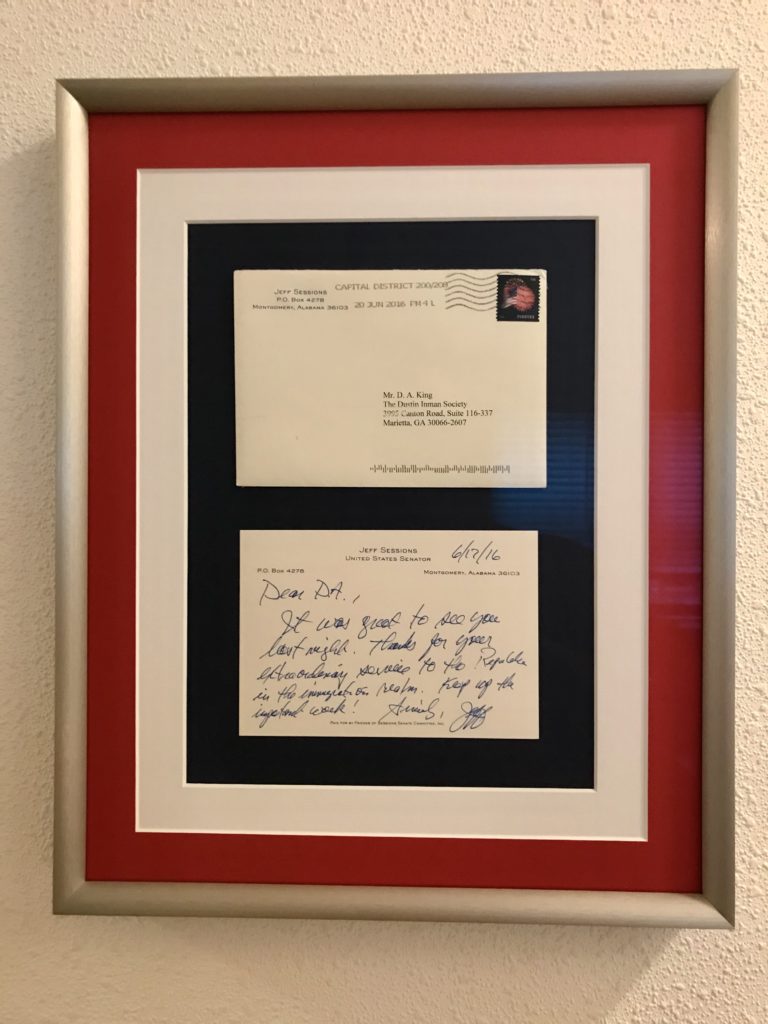 JEFF SESSIONS
P.O. BOX 4278
MONTGOMERY, ALABAMA 36103
CAPITAL DISTRICT 200/208
20 JUN 2016 PM 4 L
FOREVER
Mr. D. A. King
The Dustin Inman Society
2995 Canton Road, Suite 116-337
Marietta, GA 30066-2607
JEFF SESSIONS
UNITED STATES SENATOR
6/17/16
P.O. BOX 4278
MONTGOMERY, ALABAMA 36103
Dear D.A.,
It was great to see you
last night. Thanks for your
extraordinary service to the Republic
in the immigration realm. Keep up the
important work! Sincerely, Jeff
PAID FOR BY FRIENDS OF SESSIONS SENATE COMMITTEE, INC.